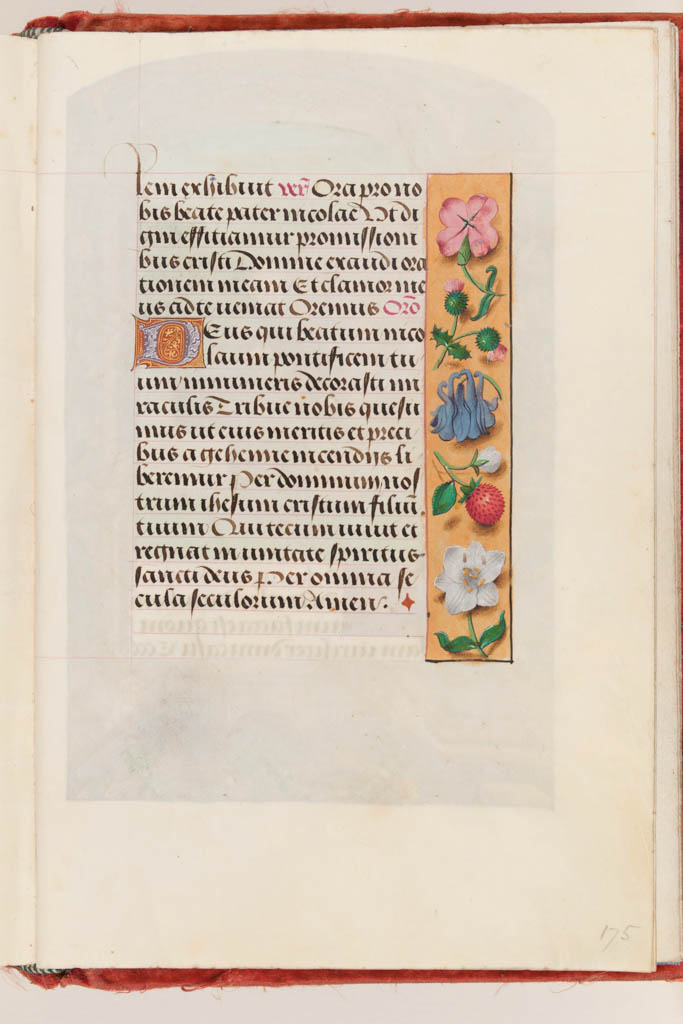 lem exhibuit ver̄ Ora pro no
bis beate pater nicolae Vt di
gni efficiamur promissioni
bus cristi Domine exaudi ora
tionem meam Et clamor me
us ad te ueniat Oremus Orō
Deus qui beatum nico
laum pontificem tu
um innumeris decorasti mi
raculis Tribue nobis quesu
mus ut eius meritis et preci
bus a gehenne incendijs li
beremur Per dominum nos
trum ihesum cristum filiū
tuum Qui tecum uiuit et
regnat in unitate spiritus
sancti deus Per omnia se
cula seculorum Amen.
175